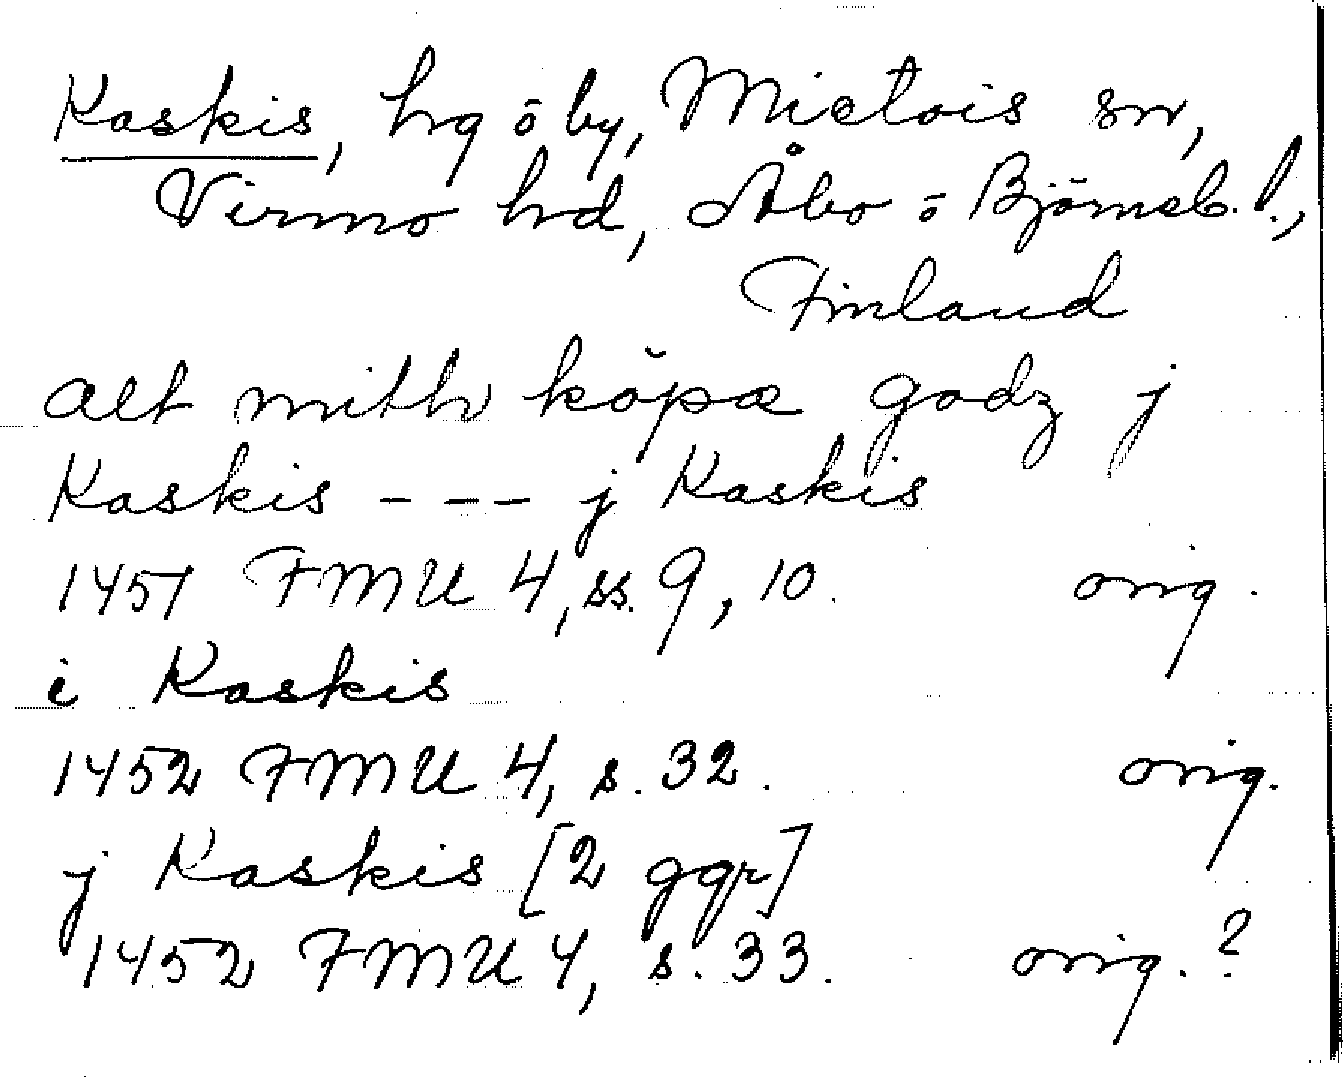 Kaskis, hg ō by, Mietois sn,
Virmo hd, Åbo ō Björneb. l.,
Finland
alt mith köpæ godz j
Kaskis - - - j Kaskis
1451 FMU 4, ss. 9, 10. orig.
i Kaskis
1452 FMU 4, s. 32. orig.
j Kaskis [2 ggr]
1452 FMU 4, s. 33. orig.?